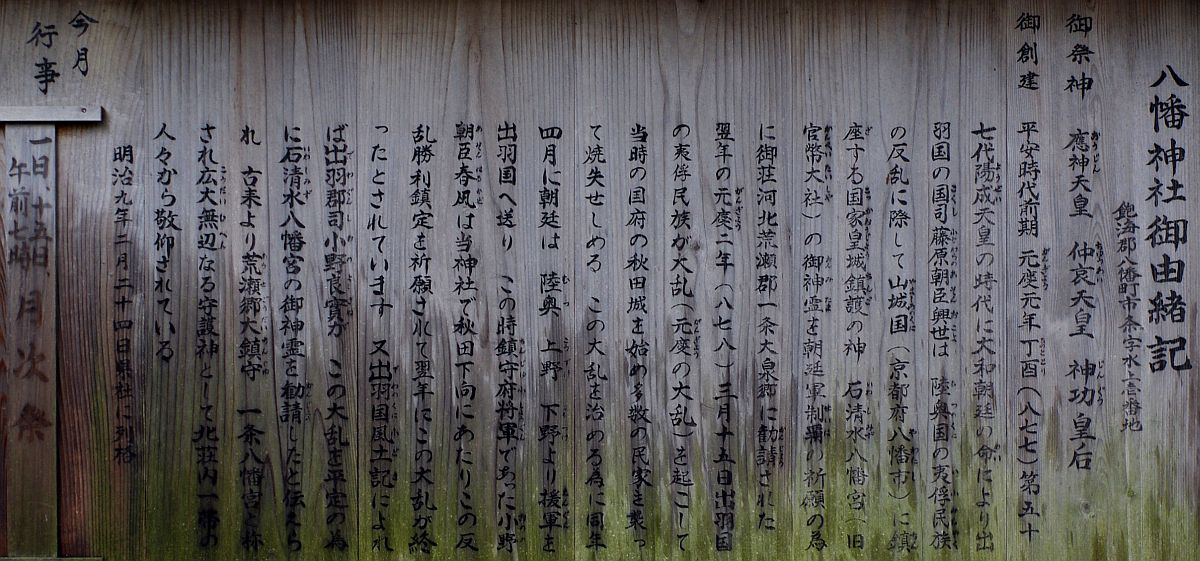 八幡神社御由緒記
飽海郡八幡町市条字水上壱番地
御祭神 應神天皇 仲哀天皇 神功皇后
御創建 平安時代前期 元慶元年丁酉(八七七)第五十
七代陽成天皇の時代に大和朝廷の命により出
羽国の国司藤原朝臣興世は 陸奥国の夷俘民族
の反乱に際して山城国(京都府八幡市)に鎮
座する国家皇城鎮護の神 石清水八幡宮(旧
官幣大社)の御神霊を朝廷軍制覇の祈願の為
に御荘河北荒瀬郡一条大泉郷に勧請された
翌年の元慶二年(八七八)三月十五日出羽国
の夷俘民族が大乱(元慶の大乱)を起こして
当時の国府の秋田城を始め多数の民家を襲っ
て焼失せしめる この大乱を治める為に同年
四月に朝廷は 陸奥 上野 下野より援軍を
出羽国へ送り この時鎮守府将軍であった小野
朝臣春風は当神社で秋田下向にあたりこの反
乱勝利鎮定を祈願されて翌年にこの大乱が終
ったとされています 又出羽国風土記によれ
ば出羽郡司小野良實が この大乱を平定の為
に石清水八幡宮の御神霊を勧請したと伝えら
れ 古来より荒瀬郷大鎮守 一条八幡宮と称
され広大無辺なる守護神として北荘内一帯の
人々から敬仰されている
明治九年二月二十四日県社に列格
今月
行事
一日、十五日、月次祭
午前七時